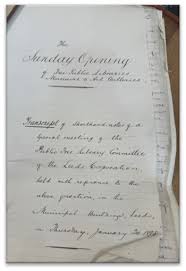 The
Sunday Opening
of The Public Libraries
Museums & Art Galleries
Transcript of Shorthand notes of a
special meeting of the
Public Free Library Committee
of the Leeds Corporation,
held with reference to the
above question, in the
Municipal Buildings, Leeds,
on Thursday, January